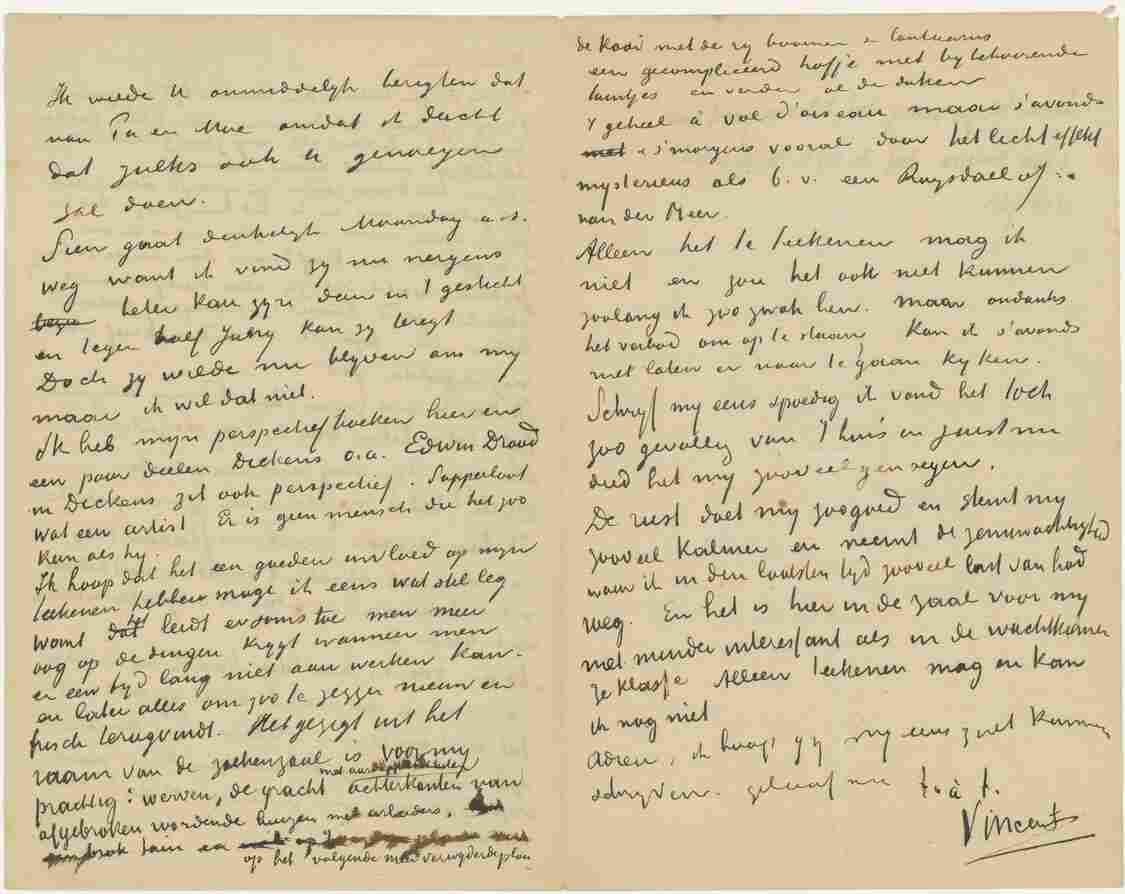 Ik wilde U onmiddelijk berigten dat
van Pa en Moe omdat ik dacht
dat zulks ook U genoegen
zal doen.
Sien gaat denkelijk Maandag a.s.
weg want ik vond zij nu nergens
beter kan zijn dan in 't gesticht
en tegen half July kan zij teregt
Doch zij wilde nu blijven om mij
maar ik wil dat niet.
Ik heb mijn perspectiefboeken hier en
een paar deelen Dickens o.a. Edwin Drood
in Dickens zit ook perspectief. Sapperloot
wat een artist Er is geen mensch die het zoo
kan als hij.
Ik hoop dat het een goeden invloed op mijn
teekenen hebben moge ik eens wat stil leg
want het leidt er soms toe men meer
oog op de dingen krijgt wanneer men
er een tijd lang niet aan werken kan.
en later alles om zoo te zeggen nieuw en
frisch terugvindt. Het gezigt uit het
raam van de ziekenzaal is voor mij
prachtig: werven, de gracht met aardappelschuiten achterkanten van
afgebroken wordende huizen met arbeiders,
tuin en
op het volgende meer verwijderde plan
de kaai met de rij boomen & lantaarns
een gecompliceerd hofje met bijbehoorende
tuintjes en verder al de daken
't geheel à vol d'oiseau maar s'avonds
& s'morgens vooral door het licht effekt
mysterieus als b.v. een Ruysdael of
van der Meer.
Alleen het te teekenen mag ik
niet en zou het ook niet kunnen
zoolang ik zoo zwak ben. maar ondanks
het verbod om op te staan, kan ik s'avonds
niet laten er naar te gaan kijken.
Schrijf mij eens spoedig ik vond het toch
zoo gezellig van 't huis en juist nu
deed het mij zooveel genoegen.
De rust doet mij zoo goed en stemt mij
zooveel kalmer en neemt de zenuwachtigheid
waar ik in den laatsten tijd zooveel last van had
weg. En het is hier in de zaal voor mij
niet minder interessant als in de wachtkamer
3e klasse Alleen teekenen mag en kan
ik nog niet
adieu, ik hoop gij mij eens zult kunnen
schrijven. geloof me t. à t.
Vincent